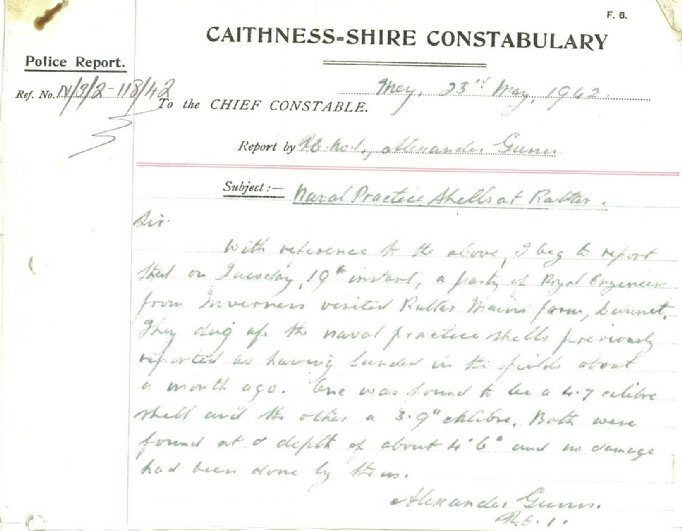 F. 6.
CAITHNESS=SHIRE CONSTABULARY
Police Report.
Ref. No. N/3/2-118/42
Mey, 23rd May, 1942.
To the CHIEF CONSTABLE.
Report by P.C. No. 1, Alexander Gunn.
Subject:— Naval Practice Shells at Rattar.
Sir,
With reference to the above, I beg to report
that on Tuesday, 19th instant, a party of Royal Engineers
from Inverness visited Rattar Mains farm, Dunnet.
They dug up the naval practice shells previously
reported as having landed in the fields about
a month ago. One was found to be a 4.7 calibre
shell and the other a 3.9" calibre. Both were
found at a depth of about 4' 6" and no damage
had been done by them.
Alexander Gunn.
P.C. 1.